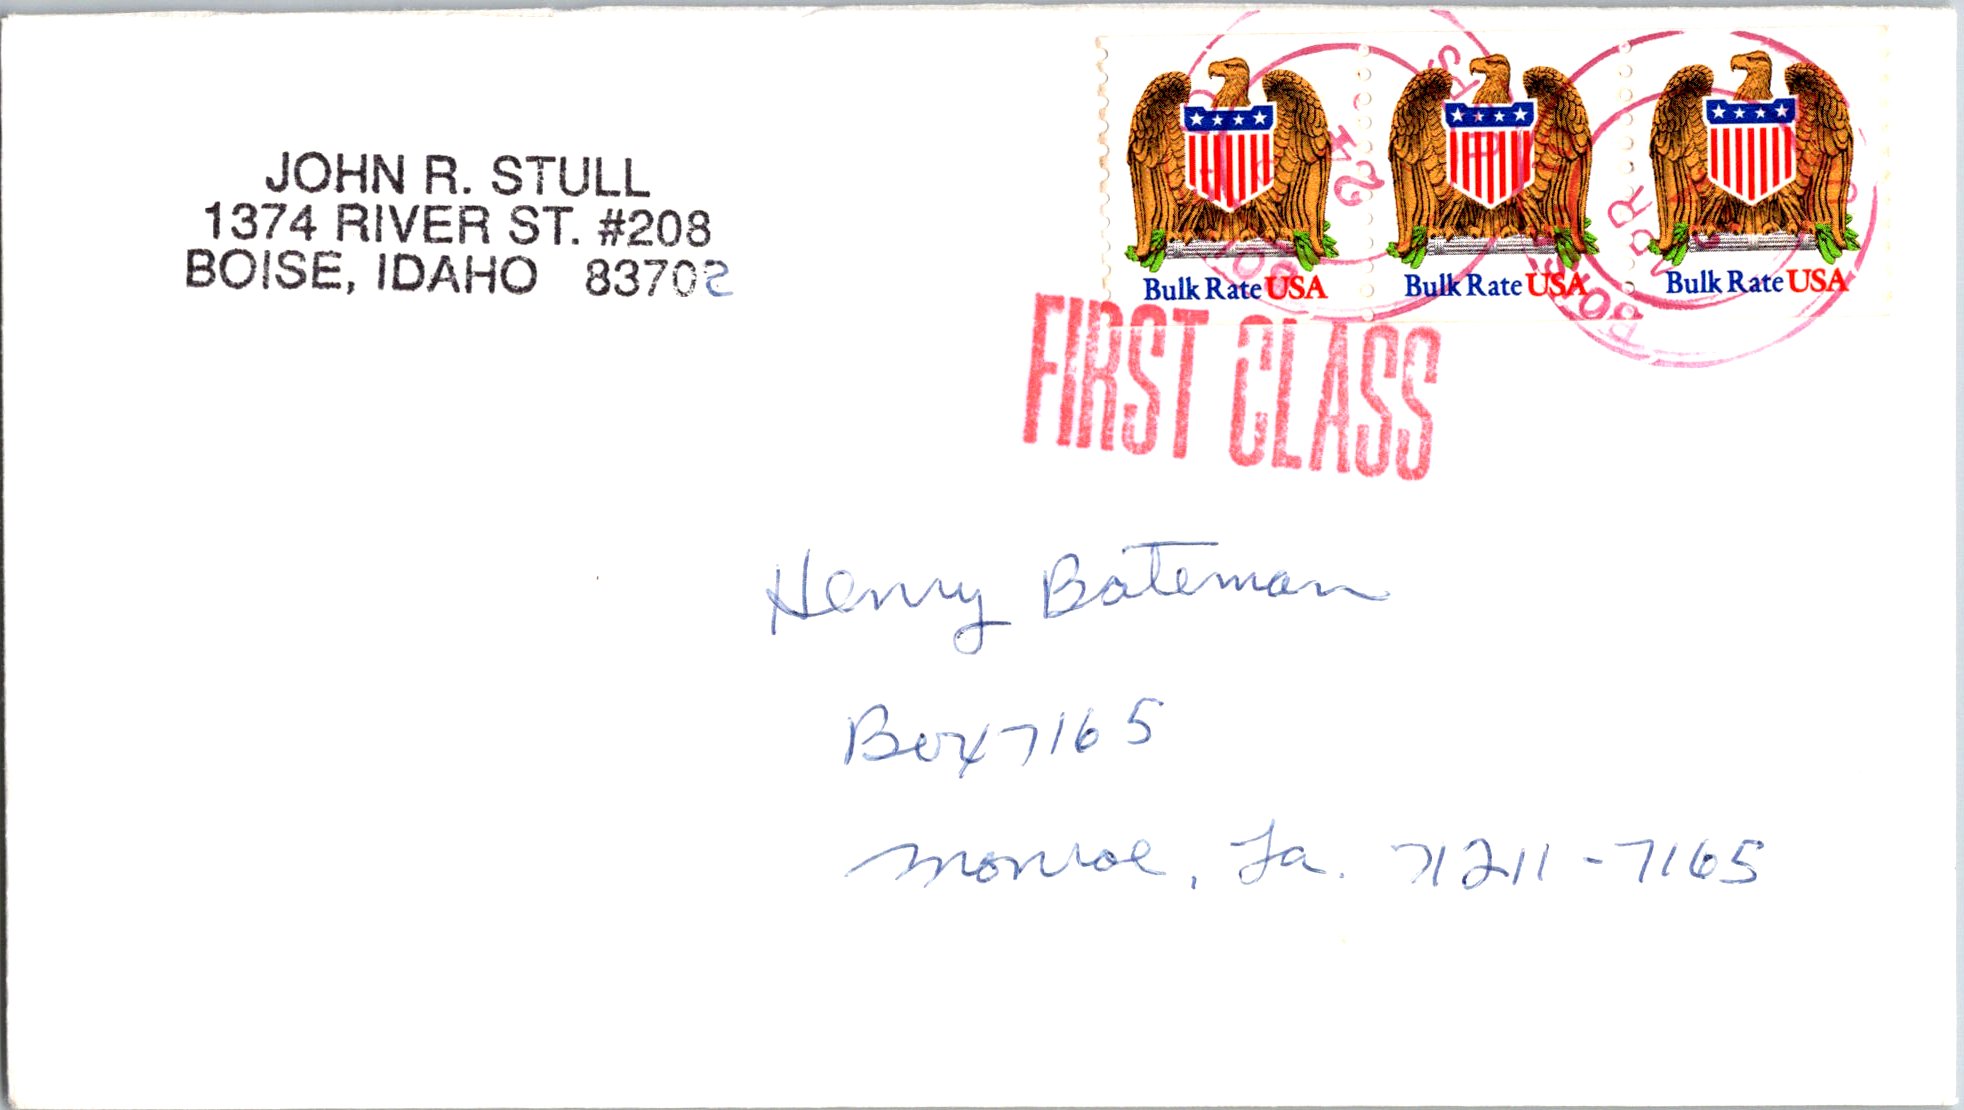 JOHN R. STULL
1374 RIVER ST. #208
BOISE, IDAHO 83702
Bulk Rate USA
Bulk Rate USA
Bulk Rate USA
APR
FIRST CLASS
Henry Bateman
Box 7165
Monroe, La. 71211-7165